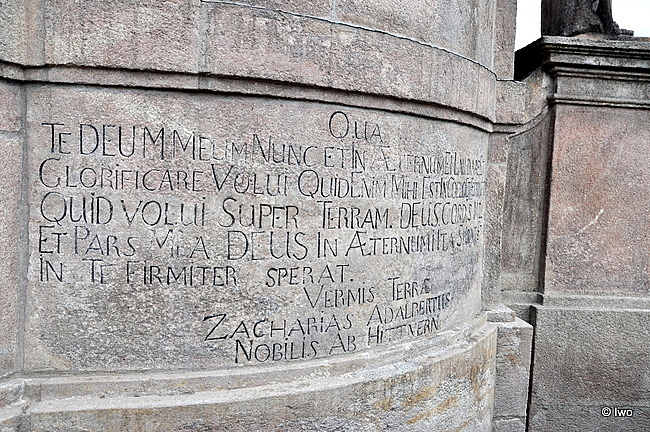 QUA
TE DEUM MEUM NUNC ET IN ÆTERNUM ET LAUDARE
GLORIFICARE VOLUI QUID ENIM MIHI EST IN COELO ET A TE
QUID VOLUI SUPER TERRAM. DEUS CORDIS MEI
ET PARS MEA DEUS IN ÆTERNUM ITA
IN TE FIRMITER SPERAT.
VERMIS TERRÆ
ZACHARIAS ADALBERTUS
NOBILIS AB HITTNERN
© Iwo